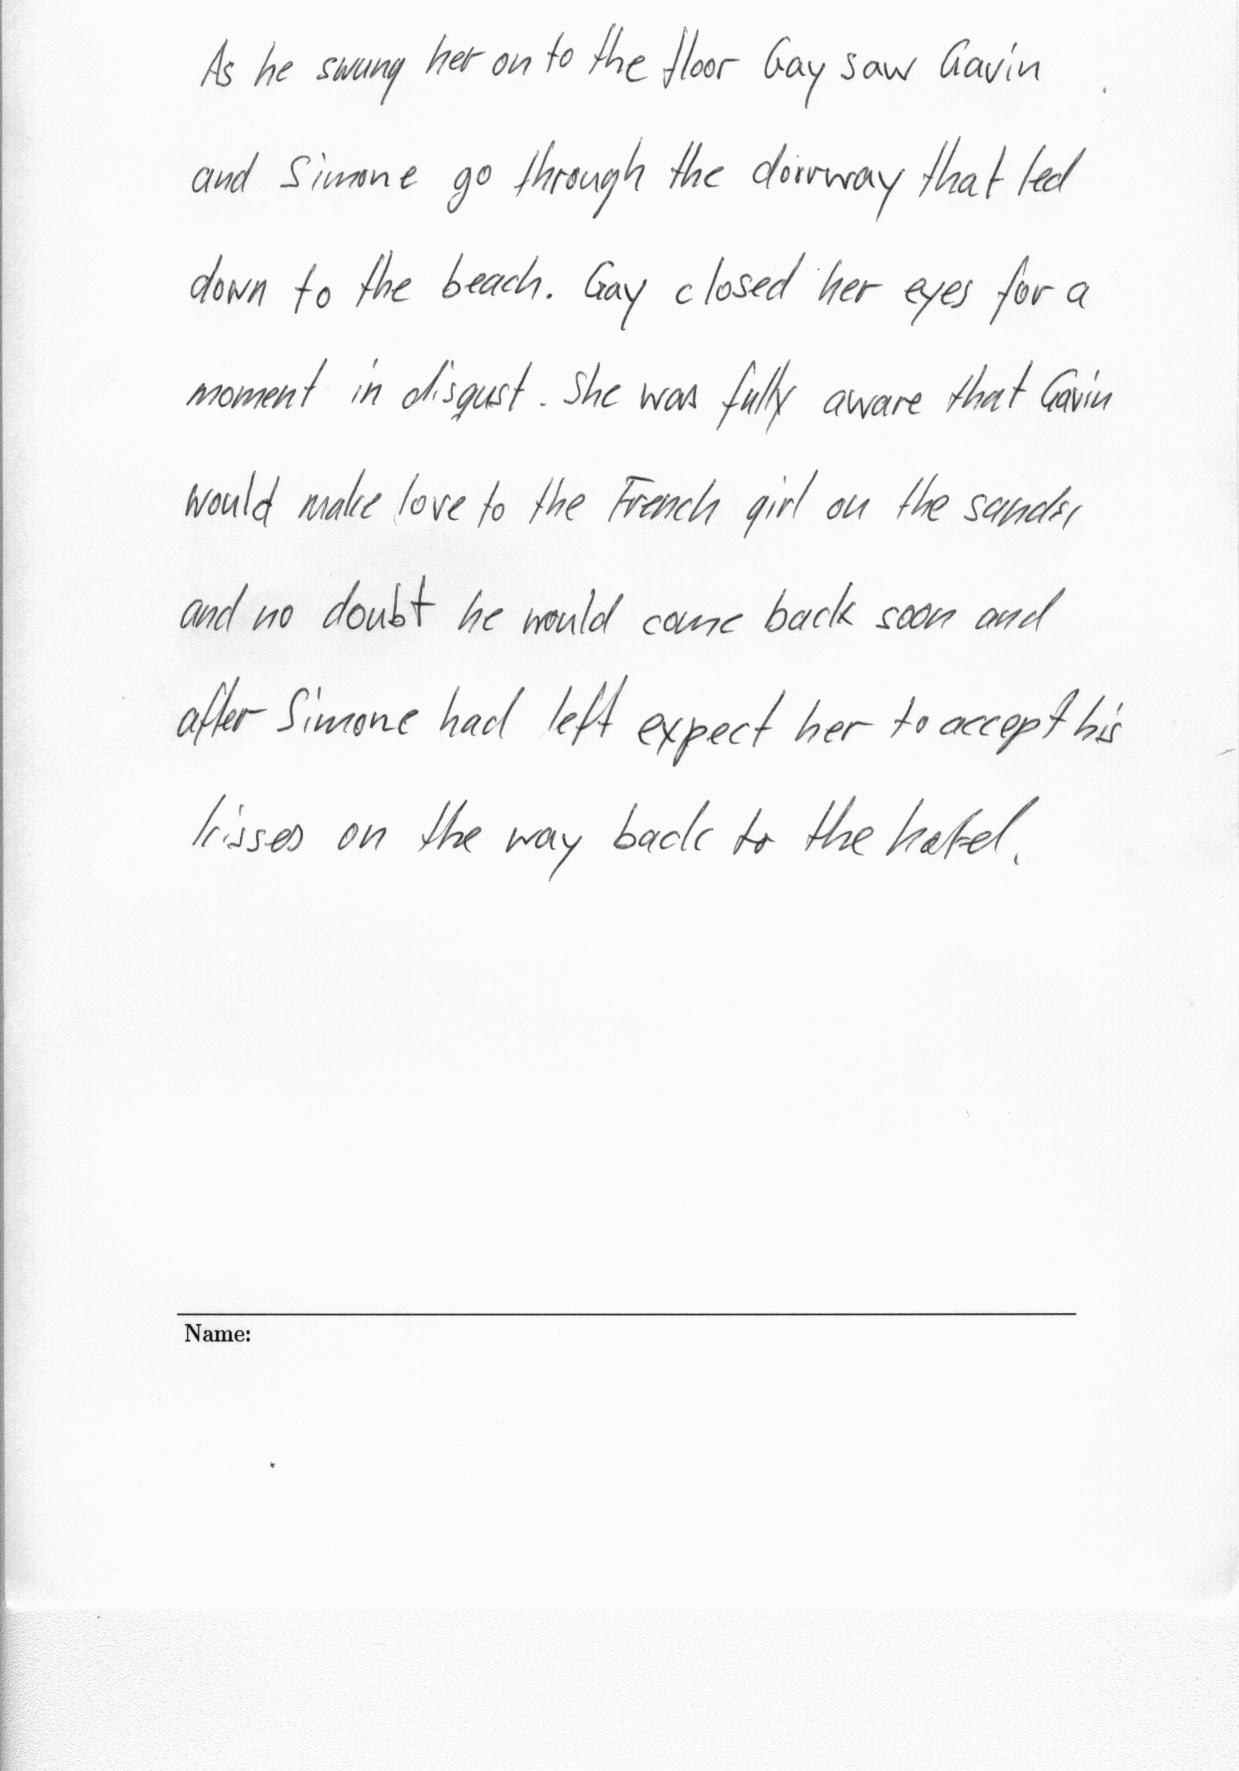 As he swung her on to the floor Gay saw Gavin
and Simone go through the doorway that led
down to the beach. Gay closed her eyes for a
moment in disgust. She was fully aware that Gavin
would make love to the French girl on the sands,
and no doubt he would come back soon and
after Simone had left expect her to accept his
kisses on the way back to the hotel.
Name: